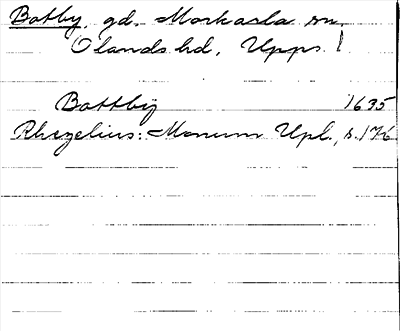 Botby, gd. Morkarla sn
Olands hd, Upps. l
Bottbÿ 1635
Rhezelius: Monum Upl., s.176